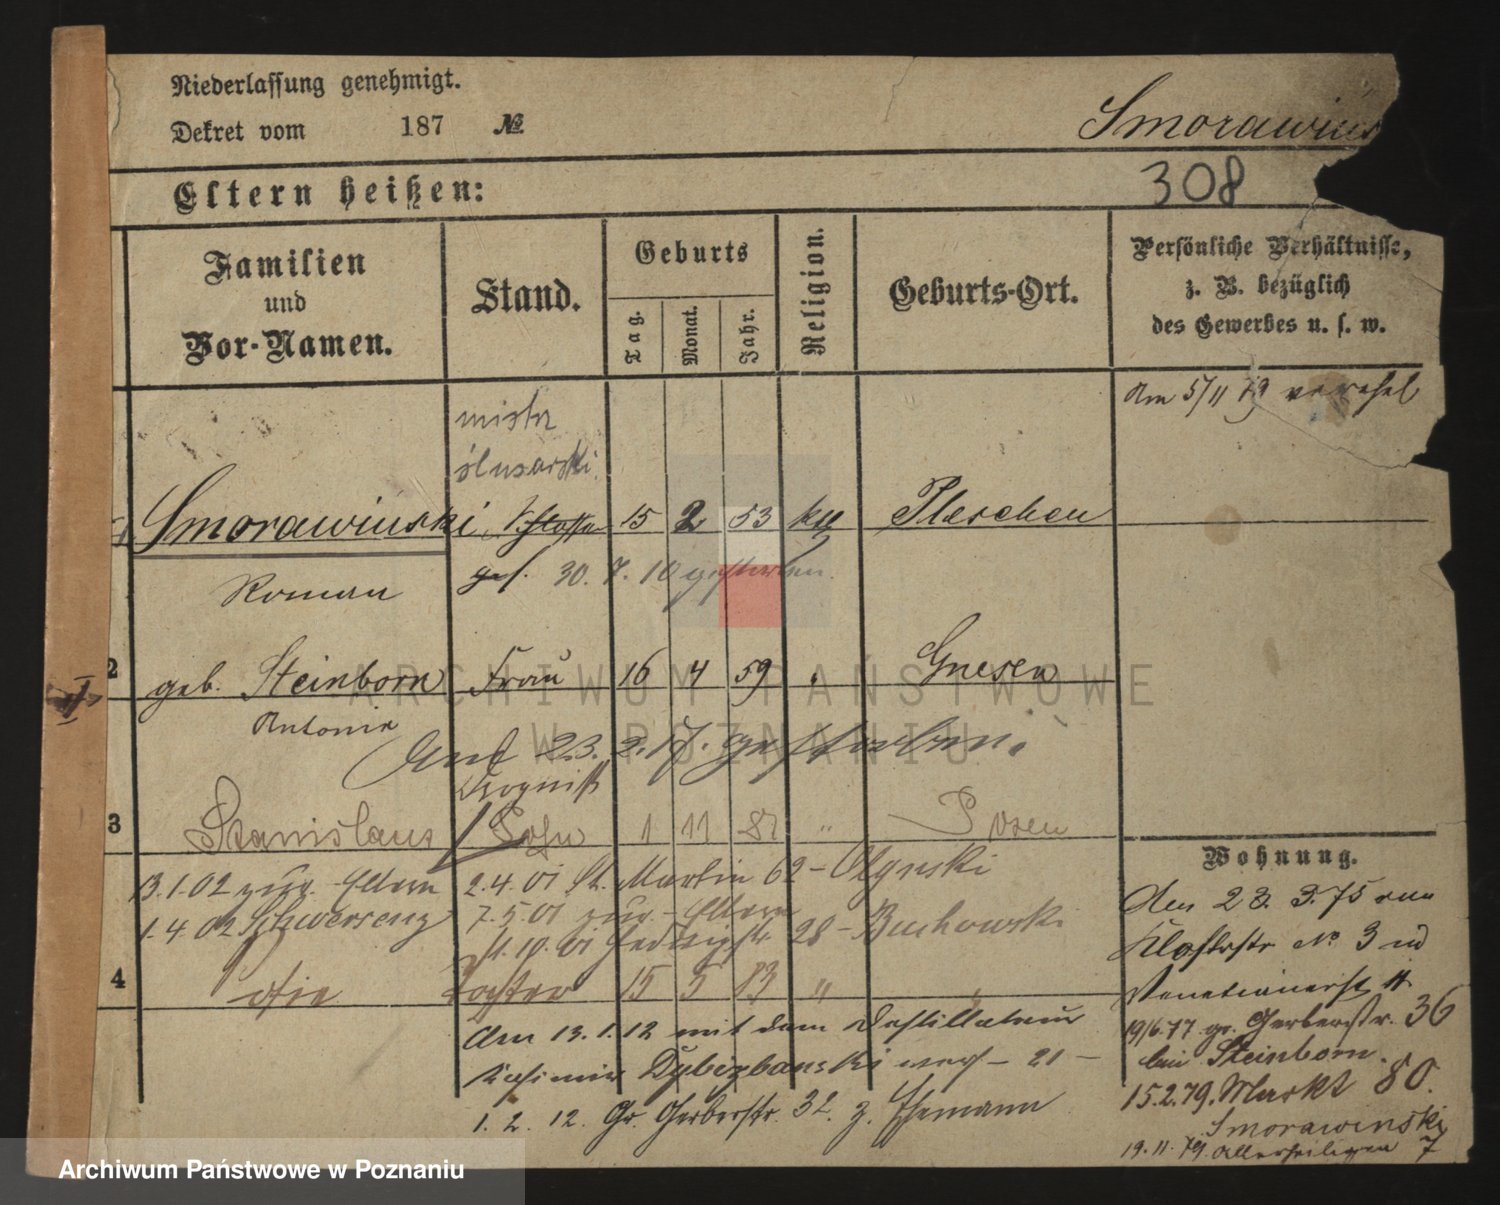 Niederlassung genehmigt.
Dekret vom 187 №
Smorawins
308
Eltern heißen:
Familien
und
Vor-Namen.
Stand.
Geburts
Tag.
Monat.
Jahr.
Religion.
Geburts-Ort.
Persönliche Verhältnisse,
z. B. bezüglich
des Gewerbes u. s. w.
Am 5/11 79 verehel
mistr
ślusarski
Smorawinski Schlosser 15 2 53 kth Pleschen
Roman
gest. 30. 7. 10 gestorben.
2 geb. Steinborn Frau 16 4 59 Gnesen
Antonie
Ant 23. 2. 17. gestorben.
Drogist
3 Stanislaus Sohn 1 11 81 " Posen
13.1.02 zur. Eltern 2.4.01 St. Martin 62 - Olynski
1.4.02 Schwersenz 7.5.01 zur. Eltern
10.01 Hedwigstr 28 - Buchowski
4 Tochter 15 5 83 "
Am 13.1.12 mit dem Destillateur
Kasimir Dybizbanski - 21 -
1. 2. 12. Gr. Gerberstr. 32 z. Ehemann
Wohnung.
Am 28. 3. 75 von
Klosterstr No 3 nd
Venetianerst 11
19/6.77 gr. Gerberstr. 36
bei Steinborn.
15.2.79. Markt 80.
Smorawinski
19.11.79. Allerheiligen 7
ARCHIWUM PAŃSTWOWE
W POZNANIU
Archiwum Państwowe w Poznaniu